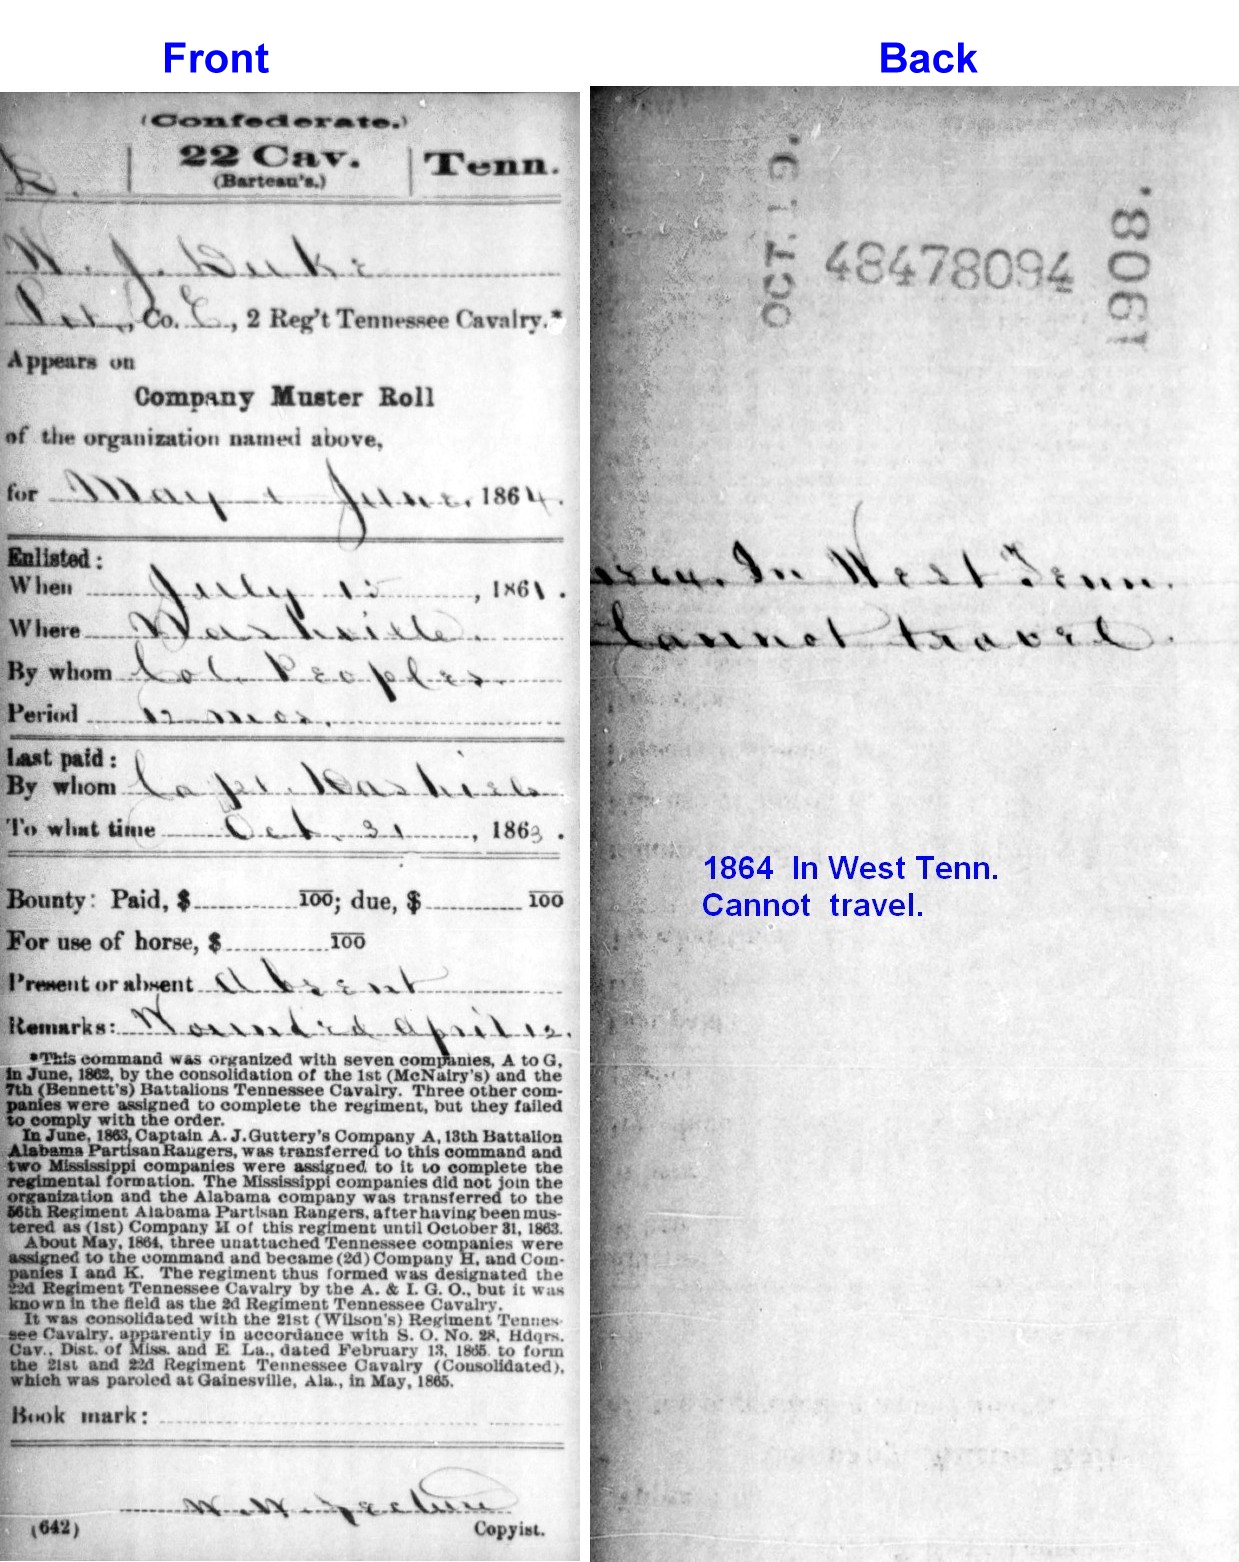 Front
(Confederate.)
22 Cav. Tenn.
(Barteau's.)
W. J. Duke
Pvt., Co. E, 2 Reg't Tennessee Cavalry.*
Appears on
Company Muster Roll
of the organization named above,
for May & June, 1864.
Enlisted:
When July 15, 1861.
Where Nashville.
By whom Col. Peoples.
Period 12 mos.
Last paid:
By whom Capt.
To what time Oct. 31, 1863.
Bounty: Paid, $ 100; due, $ 100
For use of horse, $ 100
Present or absent Absent
Remarks: Wounded April 12.
*This command was organized with seven companies, A to G,
in June, 1862, by the consolidation of the 1st (McNairy's) and the
7th (Bennett's) Battalions Tennessee Cavalry. Three other com-
panies were assigned to complete the regiment, but they failed
to comply with the order.
In June, 1863, Captain A. J. Guttery's Company A, 13th Battalion
Alabama Partisan Rangers, was transferred to this command and
two Mississippi companies were assigned to it to complete the
regimental formation. The Mississippi companies did not join the
organization and the Alabama company was transferred to the
56th Regiment Alabama Partisan Rangers, after having been mus-
tered as (1st) Company H of this regiment until October 31, 1863.
About May, 1864, three unattached Tennessee companies were
assigned to the command and became (2d) Company H, and Com-
panies I and K. The regiment thus formed was designated the
22d Regiment Tennessee Cavalry by the A. & I. G. O., but it was
known in the field as the 2d Regiment Tennessee Cavalry.
It was consolidated with the 21st (Wilson's) Regiment Tennes-
see Cavalry, apparently in accordance with S. O. No. 28, Hdqrs.
Cav., Dist. of Miss. and E. La., dated February 13, 1865, to form
the 21st and 22d Regiment Tennessee Cavalry (Consolidated),
which was paroled at Gainesville, Ala., in May, 1865.
Book mark:
W. W.
(642) Copyist.
Back
OCT. 19. 48478094 1908.
1864. In West Tenn.
Cannot travel.
1864 In West Tenn.
Cannot travel.